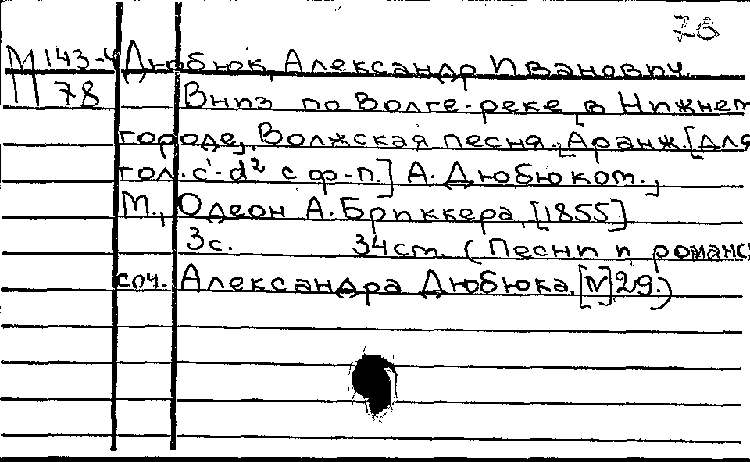 78
М 143-4 Дюбюк, Александр Иванович.
П 78 Вниз по Волге-реке, в Нижнем
городе, Волжская песня., Аранж. [для
гол. c'-d² с ф-п.] А. Дюбюком.,
М., Одеон А. Бриккера, [1855]
3с. 34см. (Песни и романс
соч. Александра Дюбюка. [N] 29.)